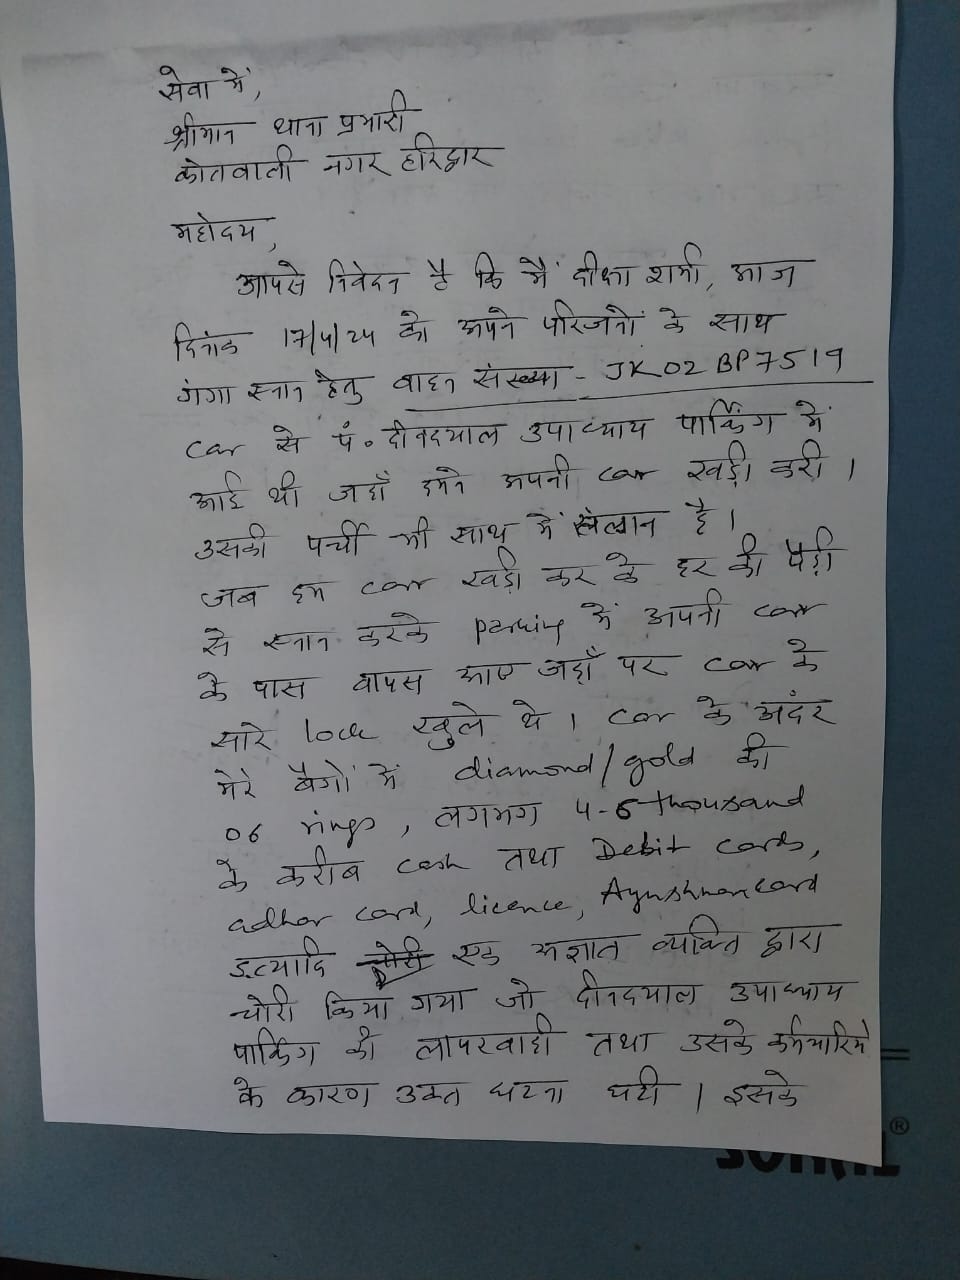 सेवा में,
श्रीमान थाना प्रभारी
कोतवाली नगर हरिद्वार
महोदय,
आपसे निवेदन है कि मैं दीक्षा शर्मा, आज
दिनांक 17/4/24 को अपने परिजनों के साथ
गंगा स्नान हेतु वाहन संख्या - JK02BP7519
car से पं॰ दीनदयाल उपाध्याय पार्किंग में
आई थी जहाँ हमने अपनी car खड़ी करी ।
उसकी पर्ची भी साथ में संलग्न है ।
जब हम car खड़ी कर के हर की पैड़ी
से स्नान करके parking में अपनी car
के पास वापस आए जहाँ पर car के
सारे lock खुले थे । car के अंदर
मेरे बैगों में diamond/gold की
06 rings, लगभग 4-5 thousand
के करीब cash तथा Debit cards,
adhar card, licence, Ayushman card
इत्यादि एक अज्ञात व्यक्ति द्वारा
चोरी किया गया जो दीनदयाल उपाध्याय
पार्किंग की लापरवाही तथा उसके कर्मचारियो
के कारण उक्त घटना घटी । इसके